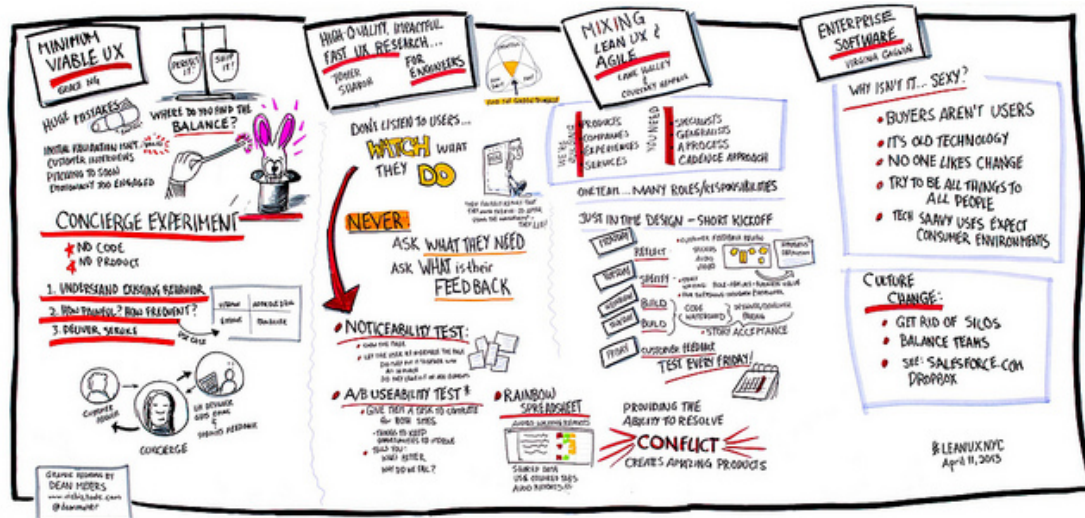 MINIMUM
VIABLE UX
GRACE NG
PERFECT IT!
SHIP IT!
HUGE MISTAKES
WHERE DO YOU FIND THE
BALANCE?
INITIAL VALIDATION ISN'T
CUSTOMER INTERVIEWS
PITCHING TO SOON
EMOTIONALLY TOO ENGAGED
CONCIERGE EXPERIMENT
NO CODE
NO PRODUCT
1. UNDERSTAND EXISTING BEHAVIOR
2. HOW PAINFUL? HOW FREQUENT?
3. DELIVER SERVICE
USE CASE
CONCIERGE
GRAPHIC RECORDING BY
DEAN MEYERS
@deanmeyer
HIGH-QUALITY, IMPACTFUL
FAST UX RESEARCH...
FOR
ENGINEERS
TOMER
SHARON
DON'T LISTEN TO USERS...
WATCH WHAT
THEY DO
NEVER:
ASK WHAT THEY NEED
ASK WHAT is their
FEEDBACK
NOTICEABILITY TEST:
A/B USEABILITY TEST*
GIVE THEM A TASK TO COMPLETE
BOTH SITES
THINGS TO KEEP
OPPORTUNITIES TO IMPROVE
TELLS YOU:
WHAT BETTER
WHY DO WE FAIL?
RAINBOW
SPREADSHEET
AVOID WRITING REPORTS
SHARED DATA
MIXING
LEAN UX &
AGILE
LANE HALLEY
&
COURTNEY HEMPHILL
PRODUCTS
COMPANIES
EXPERIENCES
SERVICES
SPECIALISTS
GENERALISTS
A PROCESS
CADENCE APPROACH
ONE TEAM... MANY ROLES/RESPONSIBILITIES
JUST IN TIME DESIGN - SHORT KICKOFF
MONDAY
REFLECT
CUSTOMER FEEDBACK REVIEW
TUESDAY
SPECIFY
WEDNESDAY
BUILD
THURSDAY
BUILD
CODE
WHITEBOARD
DESIGNER/DEVELOPER
PAIRING
STORY ACCEPTANCE
FRIDAY
CUSTOMER FEEDBACK
TEST EVERY FRIDAY!
PROVIDING THE
ABILITY TO RESOLVE
CONFLICT
CREATES AMAZING PRODUCTS
ENTERPRISE
SOFTWARE
VIRGINIA CAGWIN
WHY ISN'T IT... SEXY?
BUYERS AREN'T USERS
IT'S OLD TECHNOLOGY
NO ONE LIKES CHANGE
TRY TO BE ALL THINGS TO
ALL PEOPLE
TECH SAAVY USES EXPECT
CONSUMER ENVIRONMENTS
CULTURE
CHANGE:
GET RID OF SILOS
BALANCE TEAMS
SEE: SALESFORCE.COM
DROPBOX
#LEANUXNYC
April 11, 2013